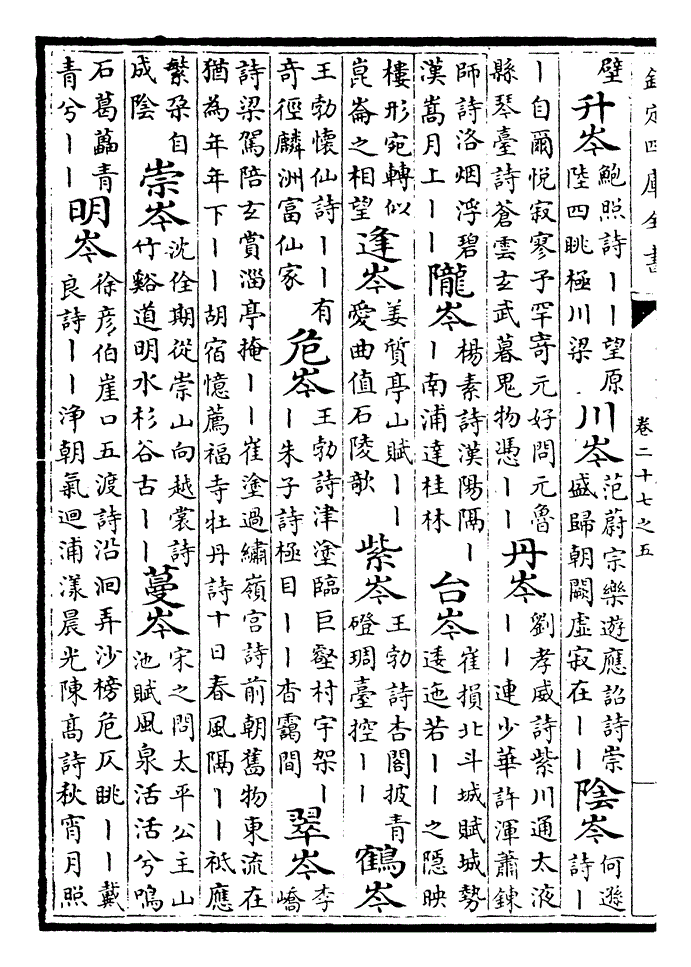 欽定四庫全書
卷二十七之五
壁升岑鮑照詩｜｜望原陸四眺極川梁川岑范蔚宗樂遊應詔詩崇盛歸朝闕虛寂在｜｜陰岑何遜詩｜
｜自爾悅寂寥予罕寄元好問元魯縣琴臺詩蒼雲玄武暮鬼物憑｜｜丹岑劉孝威詩紫川通太液｜｜連少華許渾蕭鍊
師詩洛烟浮碧漢嵩月上｜｜隴岑楊素詩漢陽隔｜｜南浦達桂林台岑崔損北斗城賦城勢逶迤若｜｜之隱映
樓形宛轉似崑崙之相望逢岑姜質亭山賦｜｜愛曲值石陵欹紫岑王勃詩杏閣披青磴琱臺控｜｜鶴岑
王勃懷仙詩｜｜有奇徑麟洲富仙家危岑王勃詩津塗臨巨壑村宇架｜｜朱子詩極目｜｜杳靄間翠岑李嶠
詩梁駕陪玄賞淄亭掩｜｜崔塗過繡嶺宮詩前朝舊物東流在猶為年年下｜｜胡宿憶薦福寺牡丹詩十日春風隔｜｜祗應
繁朶自成陰崇岑沈佺期從崇山向越裳詩竹谿道明水杉谷古｜｜蔓岑宋之問太平公主山池賦風泉活活兮鳴
石葛藟青青兮｜｜明岑徐彥伯崖口五渡詩沿洄弄沙榜危仄眺｜｜戴良詩｜｜浄朝氣迴浦漾晨光陳高詩秋宵月照